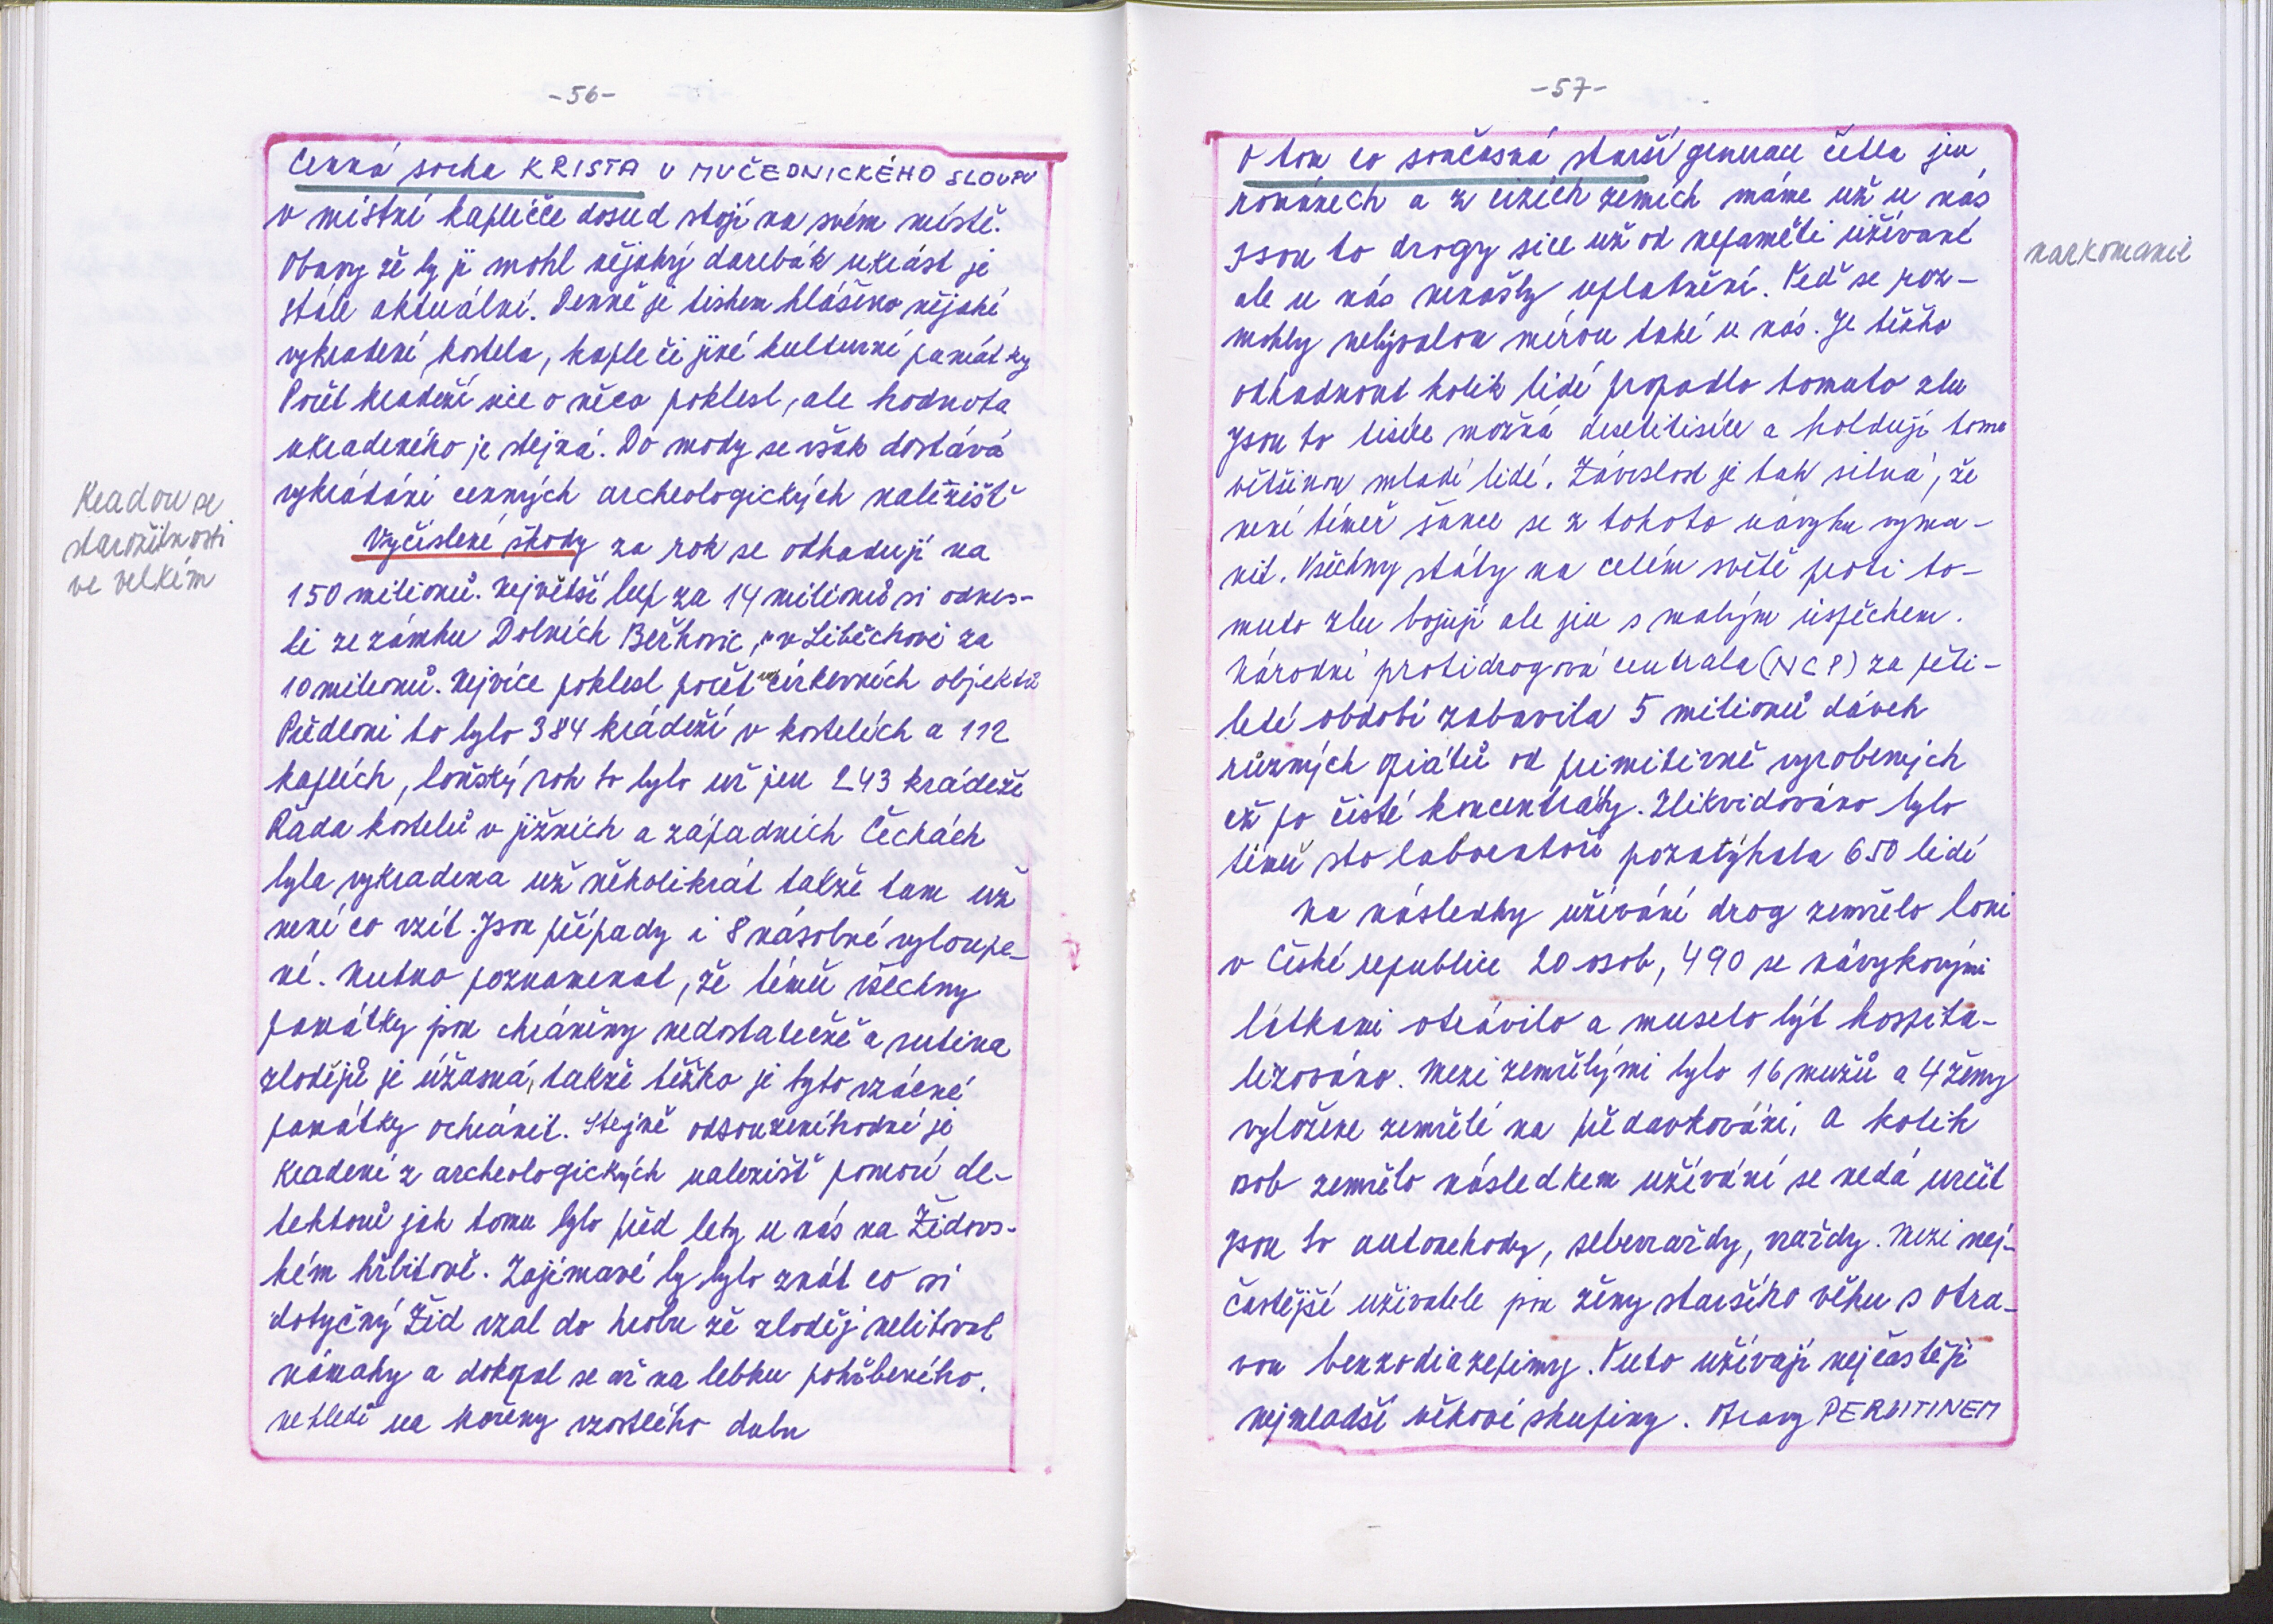 -56-
Cenná socha KRISTA U MUČEDNICKÉHO SLOUPU
v místní kapličce dosud stojí na svém místě.
Obavy že by ji mohl nějaký darebák ukrást je
stále aktuální. Denně je tiskem hlášeno nějaké
vykradení kostela, kaple či jiné kulturní památky
Počet kradeží sice o něco poklesl, ale hodnota
ukradeného je stejná. Do mody se však dostává
vykrádání cenných archeologických nalezišť
Kradou se
starožitnosti
ve velkém
Vyčíslené škody za rok se odhadují na
150 milionů. Největší lup za 14 milionů si odnes-
li ze zámku Dolních Beřkovic, v Liběchově za
10 milionů. Nejvíce poklesl počet církevních objektů
Předloni to bylo 384 krádeží v kostelích a 112
kaplích, loňský rok to bylo už jen 243 krádeže
Řada kostelů v jižních a západních Čechách
byla vykradena už několikrát takže tam už
není co vzít. Jsou případy i 8 násobné vyloupe-
ní. Nutno poznamenat, že téměř všechny
památky jsou chráněny nedostatečně a rutina
zlodějů je úžasná, takže těžko je tyto vzácné
památky ochránit. Stejně odsouzeníhodné je
kradení z archeologických nalezišť pomocí de-
tektorů jak tomu bylo před lety u nás na Židovs-
kém hřbitově. Zajímavé by bylo znát co si
dotyčný Žid vzal do hrobu že zloděj nelitoval
námahy a dokopal se až na lebku pohřbeného.
nehledě na kořeny vzrostlého dubu
-57-
O tom co současná starší generace četla jen
románech a z cizích zemích máme už u nás
Jsou to drogy sice už od nepaměti užívané
narkomanie
ale u nás nenašly uplatnění. Teď se roz-
mohly nebývalou mírou také u nás. Je těžko
odhadnout kolik lidí propadlo tomuto zlu
Jsou to tisíce možná desetitisíce a holdují tomu
většinou mladí lidé. Závislost je tak silná, že
není téměř šance se z tohoto návyku vyma-
nit. Všechny státy na celém světě proti to-
muto zlu bojují ale jen s malým úspěchem.
Národní protidrogová centrala (NCP) za pěti-
leté období zabavila 5 milionů dávek
různých opiátů od primitivně vyrobených
až po čisté koncentráty. Zlikvidováno bylo
téměř sto laboratoří pozatýkala 650 lidí
Na následky užívání drog zemřelo loni
v České republice 20 osob, 490 se návykovými
látkami otrávilo a muselo být hospita-
lizováno. Mezi zemřelými bylo 16 mužů a 4 ženy
vyložene zemřelé na předavkování, a kolik
osob zemřelo následkem užívání se nedá určit
Jsou to autonehody, sebevraždy, vraždy. Mezi nej-
častější uživatele jsou ženy staršího věku s otra-
vou benzodiazepiny. Tuto užívají nejčastěji
nejmladší věkové skupiny. Otravy PERVITINEM